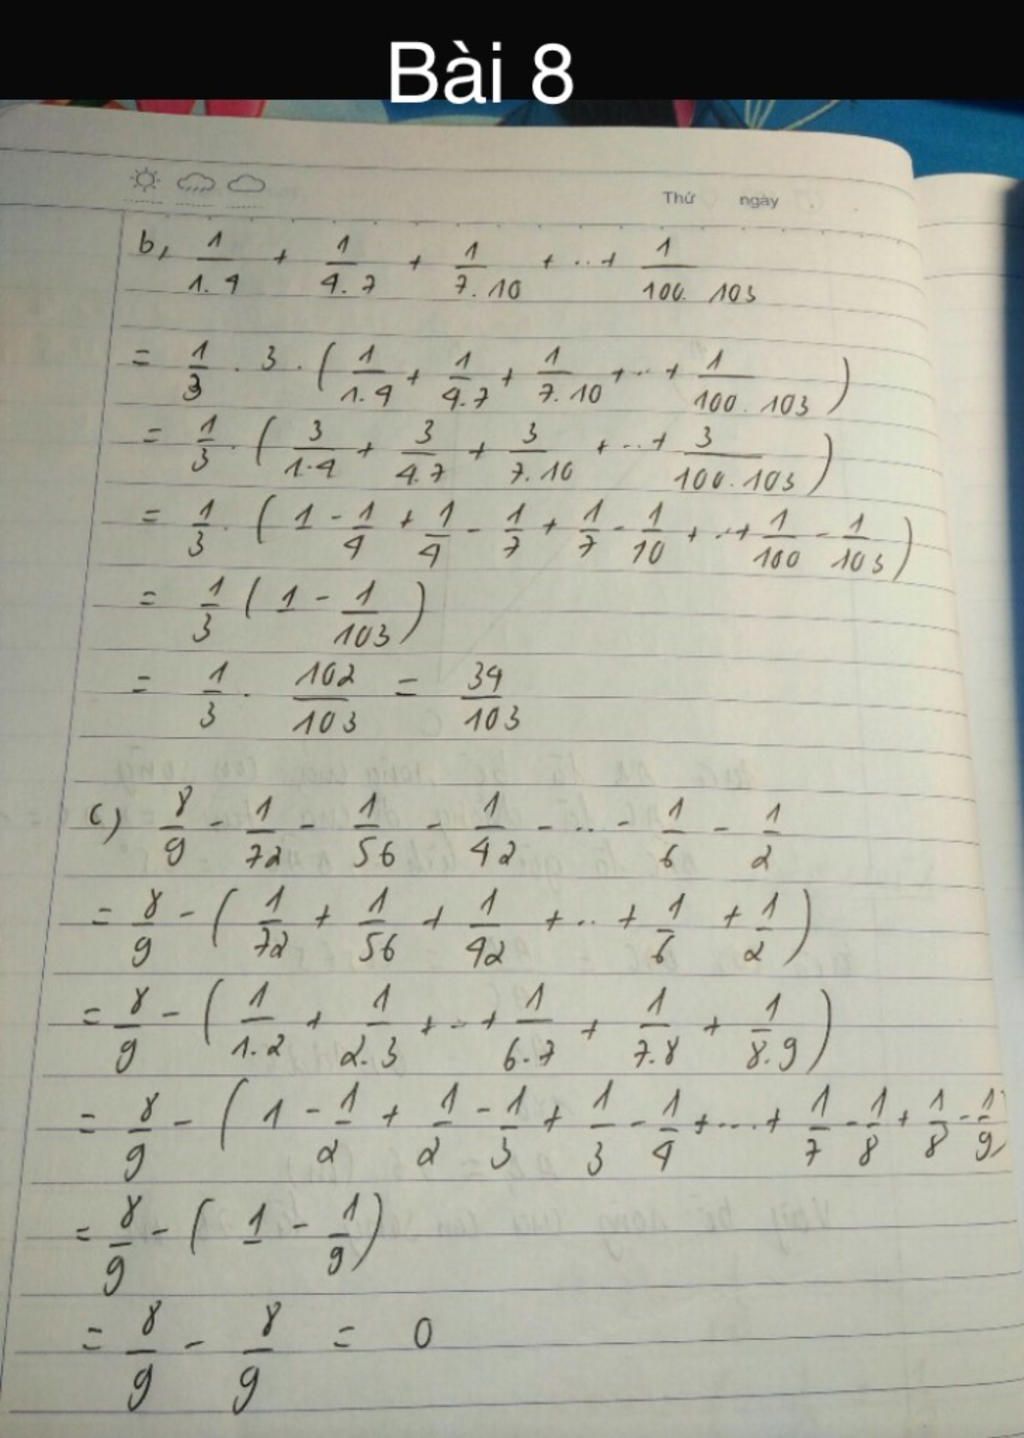 Bài 8
Thứ ngày
b, 1/1.4 + 1/4.7 + 1/7.10 + ... + 1/100.103
= 1/3 . 3 . ( 1/1.4 + 1/4.7 + 1/7.10 + ... + 1/100.103 )
= 1/3 . ( 3/1.4 + 3/4.7 + 3/7.10 + ... + 3/100.103 )
= 1/3 . ( 1 - 1/4 + 1/4 - 1/7 + 1/7 - 1/10 + ... + 1/100 - 1/103 )
= 1/3 ( 1 - 1/103 )
= 1/3 . 102/103 = 34/103
c) 8/9 - 1/72 - 1/56 - 1/42 - ... - 1/6 - 1/2
= 8/9 - ( 1/72 + 1/56 + 1/42 + ... + 1/6 + 1/2 )
= 8/9 - ( 1/1.2 + 1/2.3 + ... + 1/6.7 + 1/7.8 + 1/8.9 )
= 8/9 - ( 1 - 1/2 + 1/2 - 1/3 + 1/3 - 1/4 + ... + 1/7 - 1/8 + 1/8 - 1/9 )
= 8/9 - ( 1 - 1/9 )
= 8/9 - 8/9 = 0